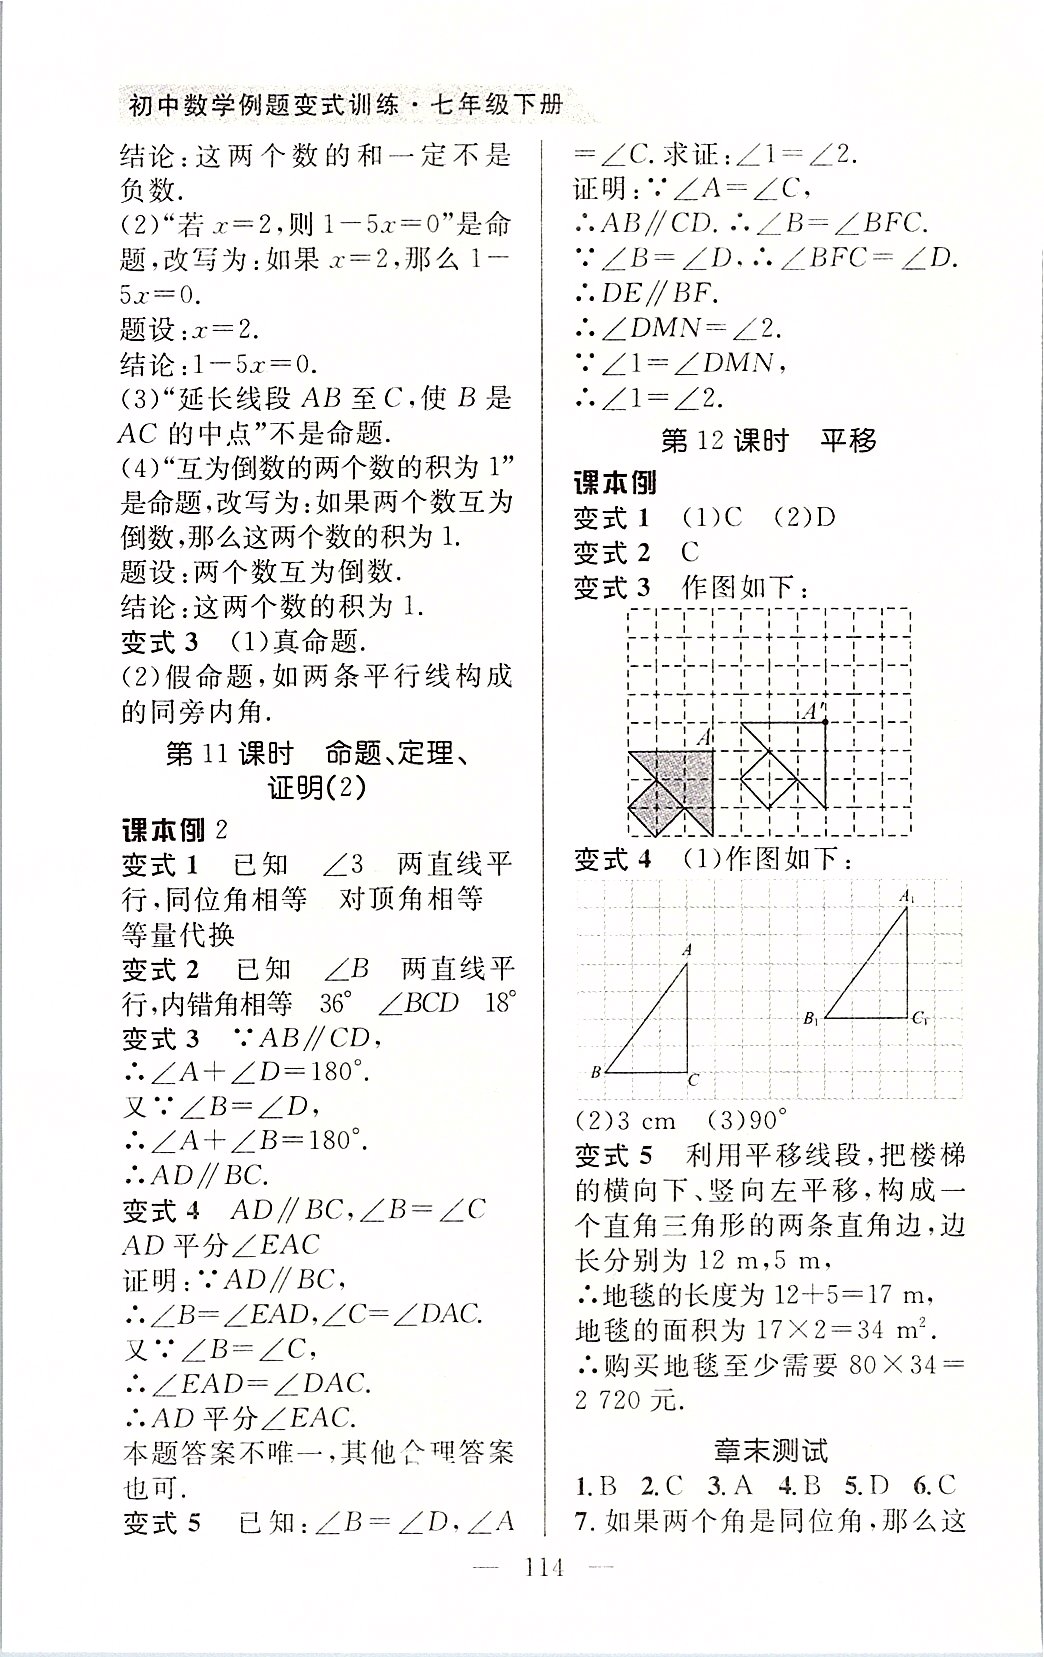 初中数学例题变式训练·七年级下册
结论:这两个数的和一定不是
负数.
(2)“若 x=2,则 1-5x=0”是命
题,改写为:如果 x=2,那么 1-
5x=0.
题设:x=2.
结论:1-5x=0.
(3)“延长线段 AB 至 C,使 B 是
AC 的中点”不是命题.
(4)“互为倒数的两个数的积为 1”
是命题,改写为:如果两个数互为
倒数,那么这两个数的积为 1.
题设:两个数互为倒数.
结论:这两个数的积为 1.
变式 3 (1)真命题.
(2)假命题,如两条平行线构成
的同旁内角.
第 11 课时 命题、定理、
证明(2)
课本例 2
变式 1 已知 ∠3 两直线平
行,同位角相等 对顶角相等
等量代换
变式 2 已知 ∠B 两直线平
行,内错角相等 36° ∠BCD 18°
变式 3 ∵AB∥CD,
∴∠A+∠D=180°.
又∵∠B=∠D,
∴∠A+∠B=180°.
∴AD∥BC.
变式 4 AD∥BC,∠B=∠C
AD 平分∠EAC
证明:∵AD∥BC,
∴∠B=∠EAD,∠C=∠DAC.
又∵∠B=∠C,
∴∠EAD=∠DAC.
∴AD 平分∠EAC.
本题答案不唯一,其他合理答案
也可.
变式 5 已知:∠B=∠D,∠A
=∠C.求证:∠1=∠2.
证明:∵∠A=∠C,
∴AB∥CD.∴∠B=∠BFC.
∵∠B=∠D,∴∠BFC=∠D.
∴DE∥BF.
∴∠DMN=∠2.
∵∠1=∠DMN,
∴∠1=∠2.
第 12 课时 平移
课本例
变式 1 (1)C (2)D
变式 2 C
变式 3 作图如下:
A′
A
变式 4 (1)作图如下:
A₁
A
B₁
C₁
B
C
(2)3 cm (3)90°
变式 5 利用平移线段,把楼梯
的横向下、竖向左平移,构成一
个直角三角形的两条直角边,边
长分别为 12 m,5 m,
∴地毯的长度为 12+5=17 m,
地毯的面积为 17×2=34 m².
∴购买地毯至少需要 80×34=
2 720 元.
章末测试
1.B 2.C 3.A 4.B 5.D 6.C
7.如果两个角是同位角,那么这
— 114 —